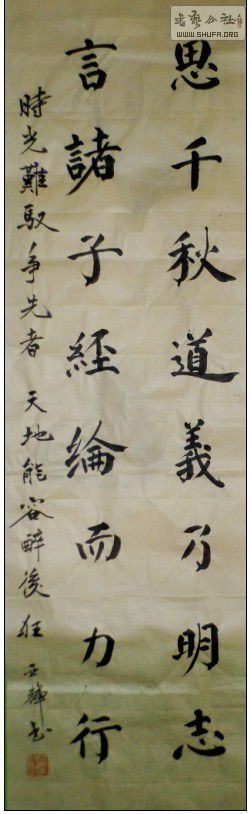 書藝公社
WWW.SHUFA.ORG
思千秋道義乃明志
言諸子經綸而力行
時光難馭争先者 天地能容醉後狂